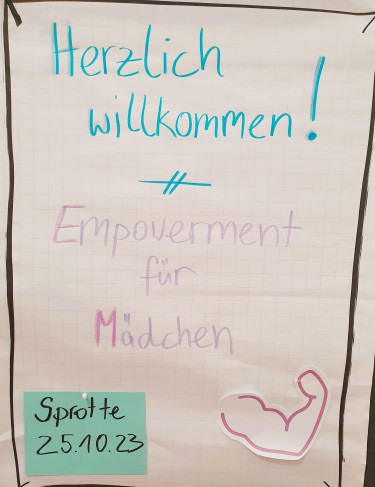 Herzlich
willkommen!
Empowerment
für
Mädchen
Sprotte
25.10.23